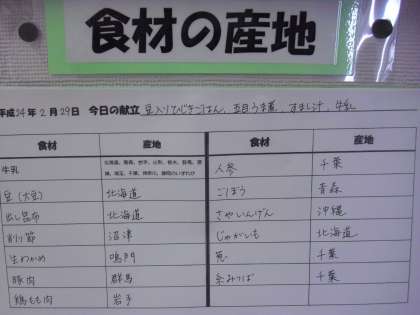 食材の産地
平成24年2月29日 今日の献立 豆入りひじきごはん、五目うま煮、すまし汁、牛乳
食材 産地 食材 産地
牛乳 人参 千葉
豆(大豆) 北海道 ごぼう 青森
出し昆布 北海道 さやいんげん 沖縄
削り節 沼津 じゃがいも 北海道
生わかめ 鳴門 千葉
豚肉 群馬 糸みつば 千葉
鶏もも肉 岩手